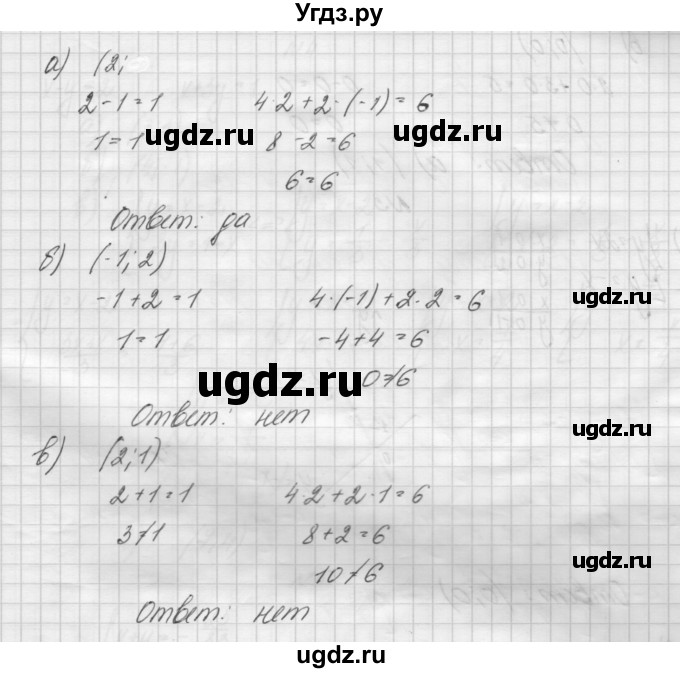 Угдз.ру
а) (2;
2 - 1 = 1 4·2 + 2·(-1) = 6
1 = 1 8 - 2 = 6
6 = 6
Ответ: да
б) (-1; 2)
-1 + 2 = 1 4·(-1) + 2·2 = 6
1 = 1 -4 + 4 = 6
0 ≠ 6
Ответ: нет
в) (2; 1)
2 + 1 = 1 4·2 + 2·1 = 6
3 ≠ 1 8 + 2 = 6
10 ≠ 6
Ответ: нет
ugdz.ru
ugdz.ru
ugdz.ru
ugdz.ru
ugdz.ru
ugdz.ru
ugdz.ru